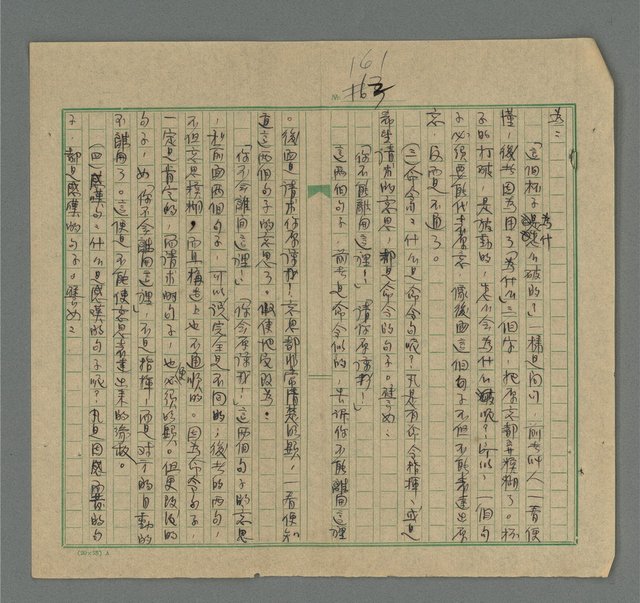 161
163
為：
「這個杯子為什麼破的？」一樣是問句，前者叫人一看便
懂，後者因為用了「為什么」三個字，把原意都弄模糊了。杯
子的打破，是被動的，怎么会為什么呢？所以，一個句
子必須要能代表意，像後面這個句子不但不能表達出原
意，反而是不通了。
(三)命令句：什么是命令句呢？凡是有命令指揮，或是
希望請求的意思，都是命令的句子。譬如：
「你不能離開這裡！」「請你原諒我！」
這兩個句子，前者是命令似的，告訴你不能離開這裡
。後面是請求你原諒我！意思都非常清楚明顯，一看便知
道這兩個句子的意思了。假使把它改為：
「你不会離開這裡」「你会原諒我！」這兩個句子的意思
，和前面兩個句子，可以說完全是不同的；後者的兩句，
不但意思模糊，而且構造上也不通順的。因為命令句子，
一定是肯定的，而請求的句子，也必須明顯。但更改後的
句子，如「你不会離開這裡」不是指揮，而是对方的自動的
不離開了。這便是不能使意思表達出來的緣故。
(四)感嘆句：什么是感嘆的句子呢？凡是因感而發的句
子，都是感嘆的句子。譬如：
(20×25) A